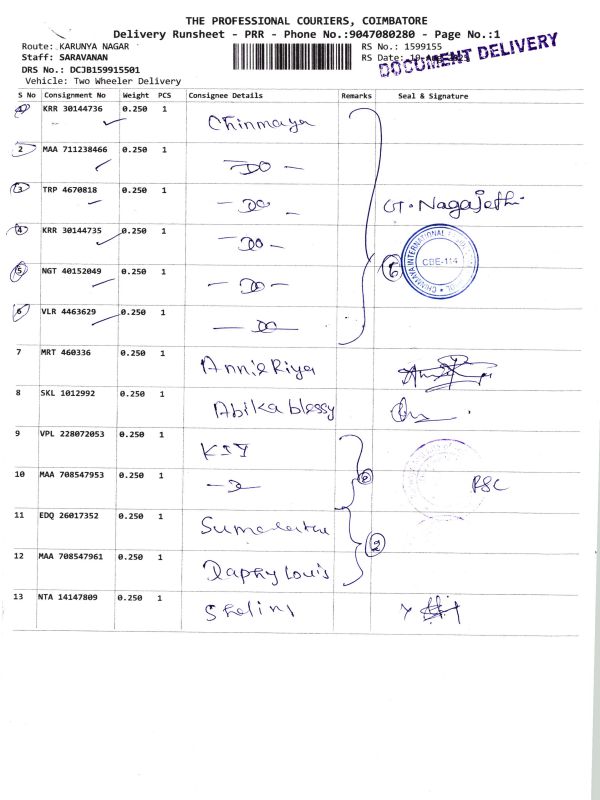 THE PROFESSIONAL COURIERS, COIMBATORE
Delivery Runsheet - PRR - Phone No.:9047080280 - Page No.:1
Route: KARUNYA NAGAR RS No.: 1599155
Staff: SARAVANAN RS Date:
DOCUMENT DELIVERY
DRS No.: DCJB159915501
Vehicle: Two Wheeler Delivery
S No Consignment No Weight PCS Consignee Details Remarks Seal & Signature
1 KRR 30144736 0.250 1 Chinmaya
2 MAA 711238466 0.250 1 - DO -
3 TRP 4670818 0.250 1 - DO - G. Nagajothi
4 KRR 30144735 0.250 1 - DO -
CHINMAYA INTERNATIONAL
CBE-114
5 NGT 40152049 0.250 1 - DO - 6
6 VLR 4463629 0.250 1 - DO
7 MRT 460336 0.250 1 Annie Riya
8 SKL 1012992 0.250 1 Abika blessy
9 VPL 228072053 0.250 1
10 MAA 708547953 0.250 1 RSC
11 EDQ 26017352 0.250 1
12 MAA 708547961 0.250 1 Daphy Louis 2
13 NTA 14147809 0.250 1 Shalini